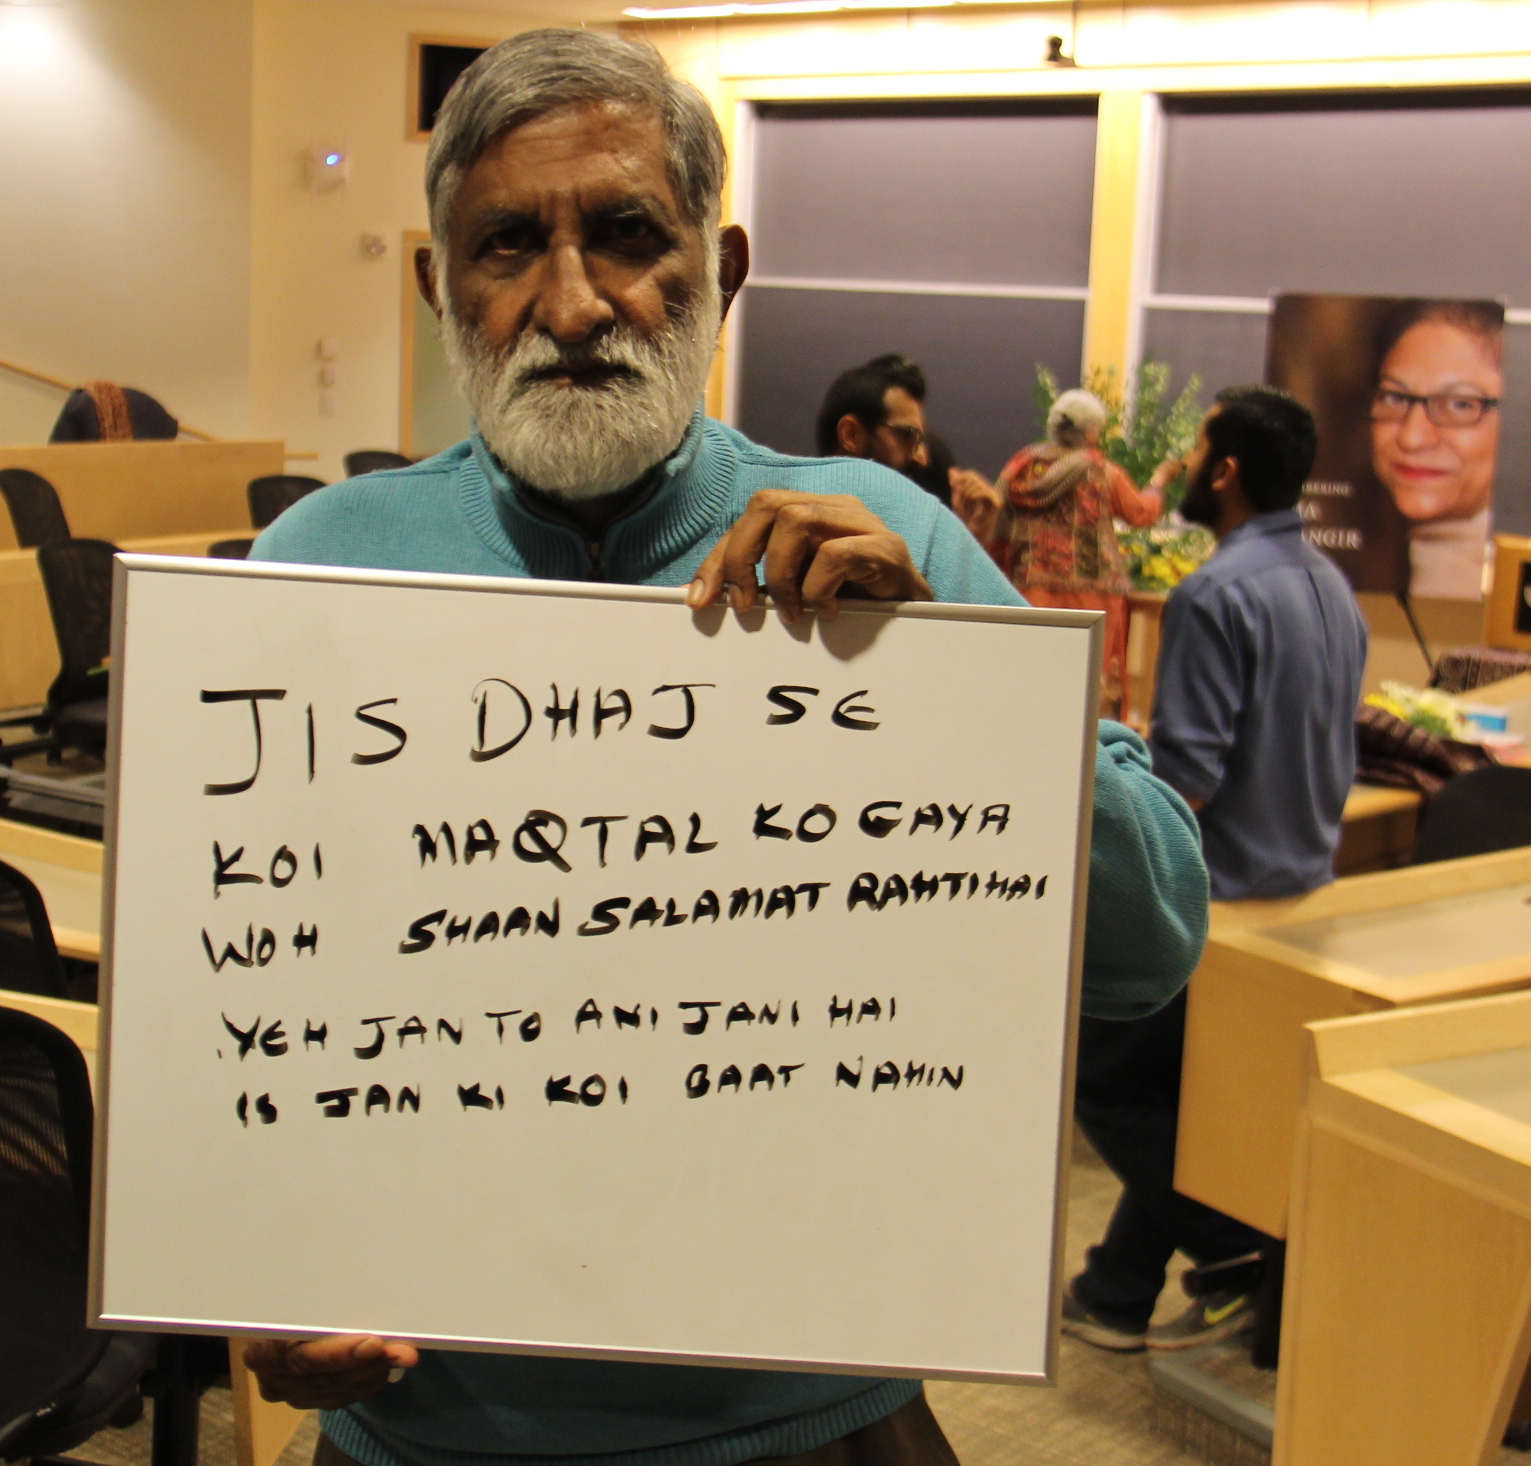 JIS DHAJ SE
KOI MAQTAL KO GAYA
WOH SHAAN SALAMAT RAHTI HAI
YEH JAN TO ANI JANI HAI
IS JAN KI KOI BAAT NAHIN